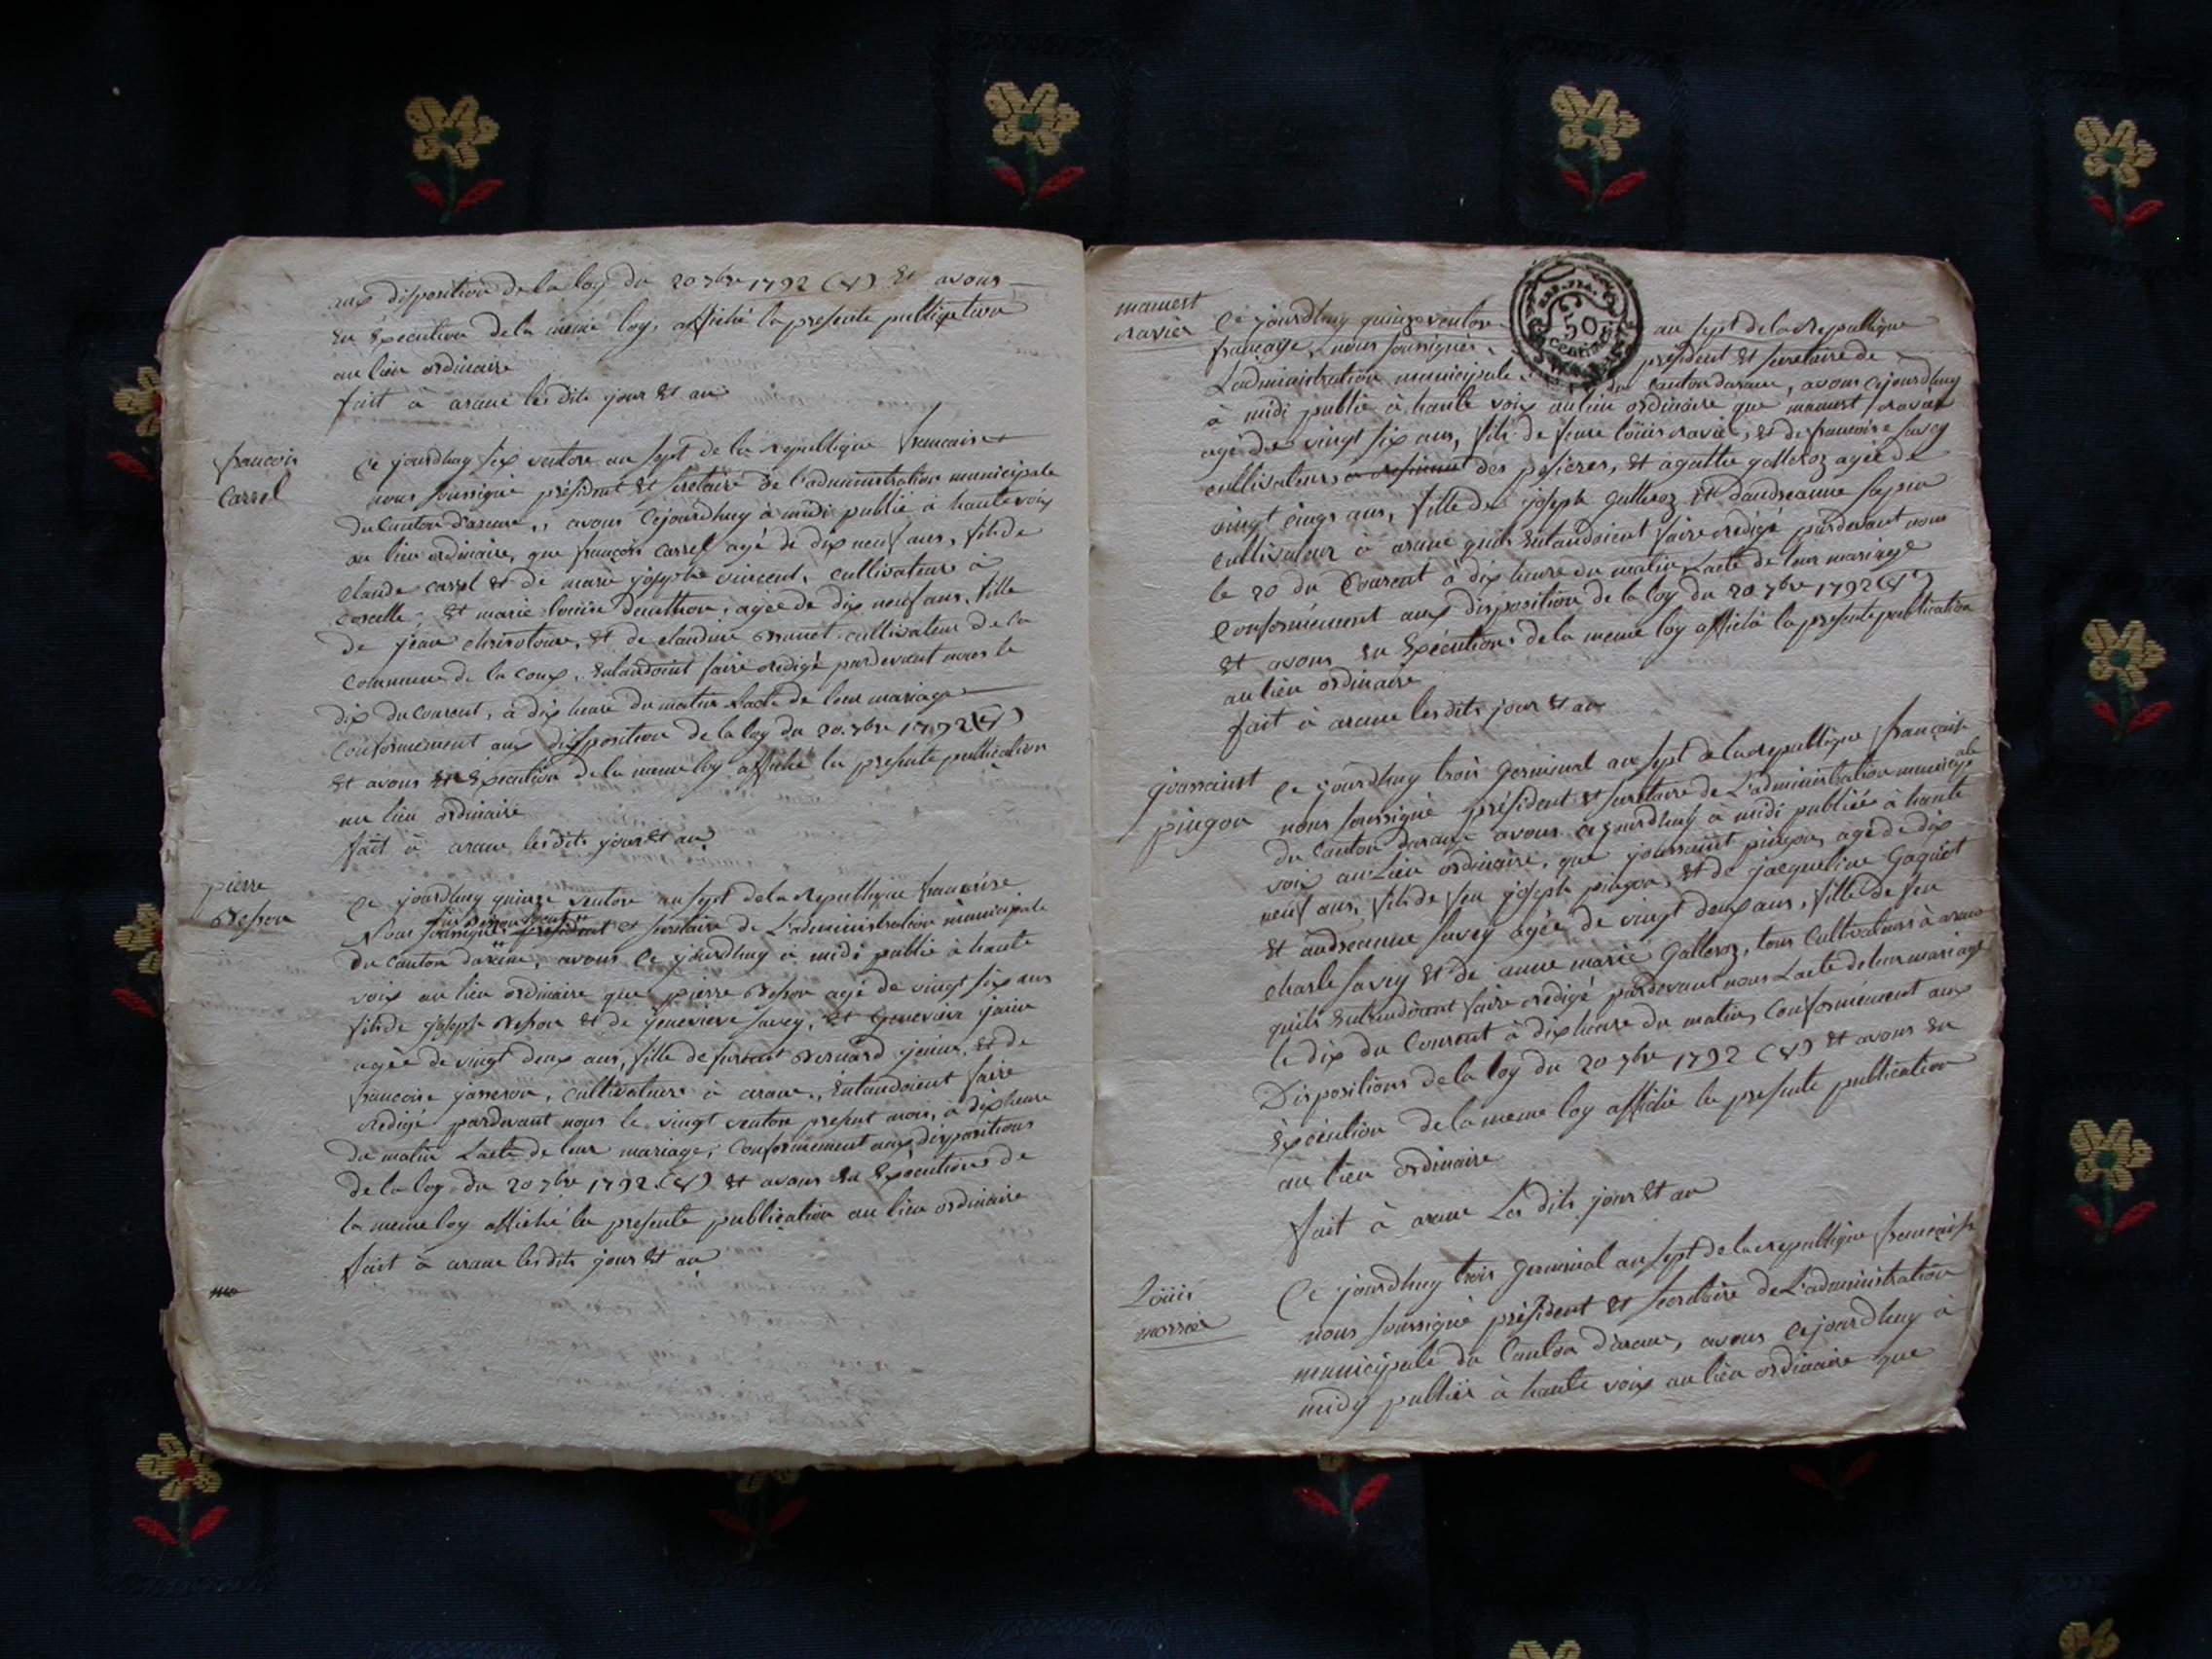 aux disposition de la loy du 20 7bre 1792 (V) Et avons
En Execution de la meme loy, affiché la presente publication
au lieu ordinaire
fait à arane les dits jour Et an
francois
Carrel
Ce jourdhuy six ventose an sept de la republique francaise
nous soussigné président Et secretaire de l'administration municipale
du Canton d'arane, avons Cejourdhuy à midi publié à haute voix
au lieu ordinaire, que francois Carrel agé de dix neuf ans, fils de
Claude Carrel Et de marie josephe vincent, cultivateurs à
Corcelle, Et marie louise agée de dix neuf ans, fille
de jean Et de claudine Brunet cultivateur de la
Commune de la Coux, Entandoint faire redigé pardevant nous le
dix du Courent, à dix heure du matin Lacte de leur mariage
Conformement aux disposition de la loy du 20 7bre 1792 (V)
Et avons En Execution de la meme loy affiché la presente publication
au lieu ordinaire
fait à arane les dits jour Et an
pierre
Besson
Ce jourdhuy quinze ventose an sept de la Republique francaise
Nous soussigné président et secretaire de L'administration municipale
du Canton darane, avons Ce jourdhuy à midi publié à haute
voix au lieu ordinaire que pierre Besson agé de vingt six ans
fils de joseph Besson Et de jenevieve savey, Et Genevieve janin
agée de vingt deux ans, fille de Bernard janin, Et de
francoise jasseron, Cultivateurs à arane, Entandoient faire
Redigé pardevant nous le vingt ventose present mois, à dix heure
du matin Lacte de leur mariage, Conformement aux dispositions
de la loy du 20 7bre 1792 (V) Et avons En Execution de
la meme loy affiché la presente publication au lieu ordinaire
fait à arane les dits jour Et an
mamest
ravier
Ce jourdhuy quinze ventose an sept de la Republique
francaise, nous soussignés président Et secretaire de
L'administration municipale du Canton darane, avons Cejourdhuy
à midi publié à haute voix au lieu ordinaire que mamest ravier
agé de vingt six ans, fils de feue loüis ravier, Et de francoise savey
cultivateurs des pesieres, Et agathe galleroz agée de
vingt cinqs ans, fille de joseph Galleroz Et dandreanne sapin
Cultivateur à arane quils Entandoient faire redigé pardevant nous
le 20 du Courent à dix heure du matin Lacte de leur mariage
Conformément aux disposition de la loy du 20 7bre 1792 (V)
Et avons En Execution de la meme loy affiché la presente publication
au lieu ordinaire
fait à arane les dits jour Et an
REP. FRA.
50
centimes
joussaint
pingon
Ce jourdhuy trois Germinal an sept de la republique francaise
nous soussigné président Et secretaire de L'administration municipale
du Canton darane avons cejourdhuy à midi publiée à haute
voix au Lieu ordinaire, que joussaint pingon, agé de dix
neuf ans, fils de feu joseph pingon, Et de jacqueline Goguet
Et andreanne savey agée de vingt deux ans, fille de feu
charle savey Et de anne marie Galleroz, tous Cultivateurs à arane
quils Entandoient faire redigé pardevant nous Lacte de leur mariage
le dix du Courent à dix heure du matin, Conformément aux
Dispositions de la loy du 20 7bre 1792 (V) Et avons En
Execution de la meme loy affiché la presente publication
au lieu ordinaire
fait à arane Les dits jour Et an
Loüis
mornier
Ce jourdhuy trois Germinal an sept de la republique francaise
nous soussigné président Et secretaire de L'administration
municipale du Canton darane, avons Cejourdhuy à
midy publiée à haute voix au lieu ordinaire que